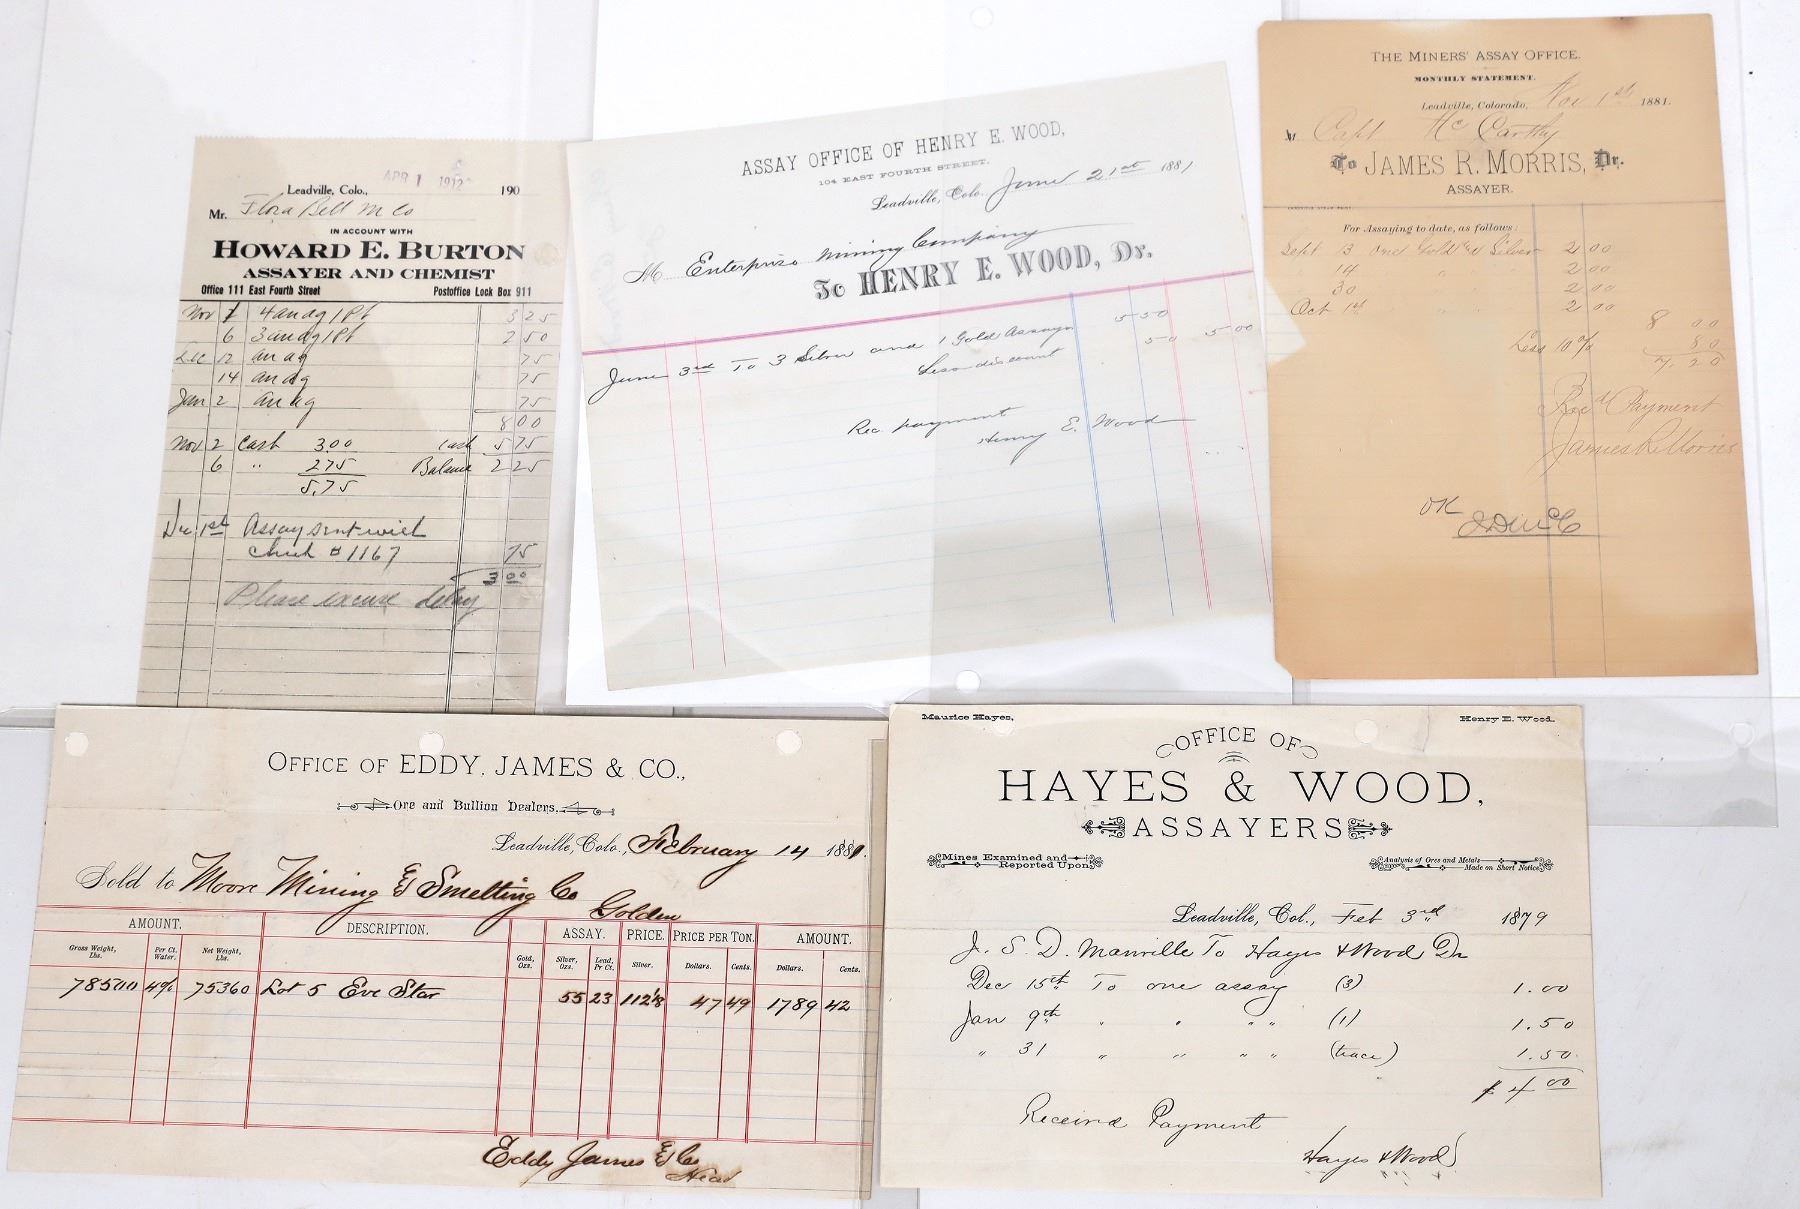 APR 1 1912
Leadville, Colo., 190
Mr. Flora Bell M Co
IN ACCOUNT WITH
HOWARD E. BURTON
ASSAYER AND CHEMIST
Office 111 East Fourth Street Postoffice Lock Box 911
Nov 1 4 au ag 1 Pb 3 25
6 3 au ag 1 Pb 2 50
Dec 12 au ag 75
14 au ag 75
Jan 2 au ag 75
8 00
Nov 2 Cash 3.00 Cash 5 75
6 " 2 75 Balance 2 25
5.75
Dec 1st Assay sent with
Check # 1167 75
3 00
Please excuse delay
ASSAY OFFICE OF HENRY E. WOOD,
104 EAST FOURTH STREET.
Leadville, Colo. June 21st 1881
M Enterprise Mining Company
To HENRY E. WOOD, Dr.
June 3rd To 3 Silver and 1 Gold Assays 5 50
Less discount 50 5 00
Rec. payment
Henry E. Wood
THE MINERS' ASSAY OFFICE.
MONTHLY STATEMENT.
Leadville, Colorado, Nov 1st 1881.
M Capt McCarthy
To JAMES R. MORRIS, Dr.
ASSAYER.
For Assaying to date, as follows:
Sept 3 one Gold & Silver 2 00
" 14 " " 2 00
" 30 " " 2 00
Oct 1st " " 2 00
8 00
Less 10% 80
7.20
Rec'd Payment
James R Morris
OK
OFFICE OF EDDY, JAMES & CO.,
Ore and Bullion Dealers.
Leadville, Colo., February 14 1881.
Sold to Moore Mining & Smelting Co
Golden
AMOUNT. DESCRIPTION. ASSAY. PRICE. PRICE PER TON. AMOUNT.
Gross Weight, Lbs. Per Ct. Water. Net Weight, Lbs. Gold, Ozs. Silver, Ozs. Lead, Pr Ct. Silver. Dollars. Cents. Dollars. Cents.
78500 4% 75360 Lot 5 Eve Star 55 23 112 1/8 47 49 1789 42
Eddy James & Co
Maurice Hayes. Henry E. Wood.
OFFICE OF
HAYES & WOOD,
ASSAYERS
Mines Examined and Reported Upon. Analysis of Ores and Metals Made on Short Notice
Leadville, Col., Feb 3rd 1879
J. S. D. Manville To Hayes & Wood Dr
Dec 15th To one assay (3) 1.00
Jan 9th " " " " (1) 1.50
" 31 " " " " (trace) 1.50
$ 4 00
Received Payment
Hayes & Wood